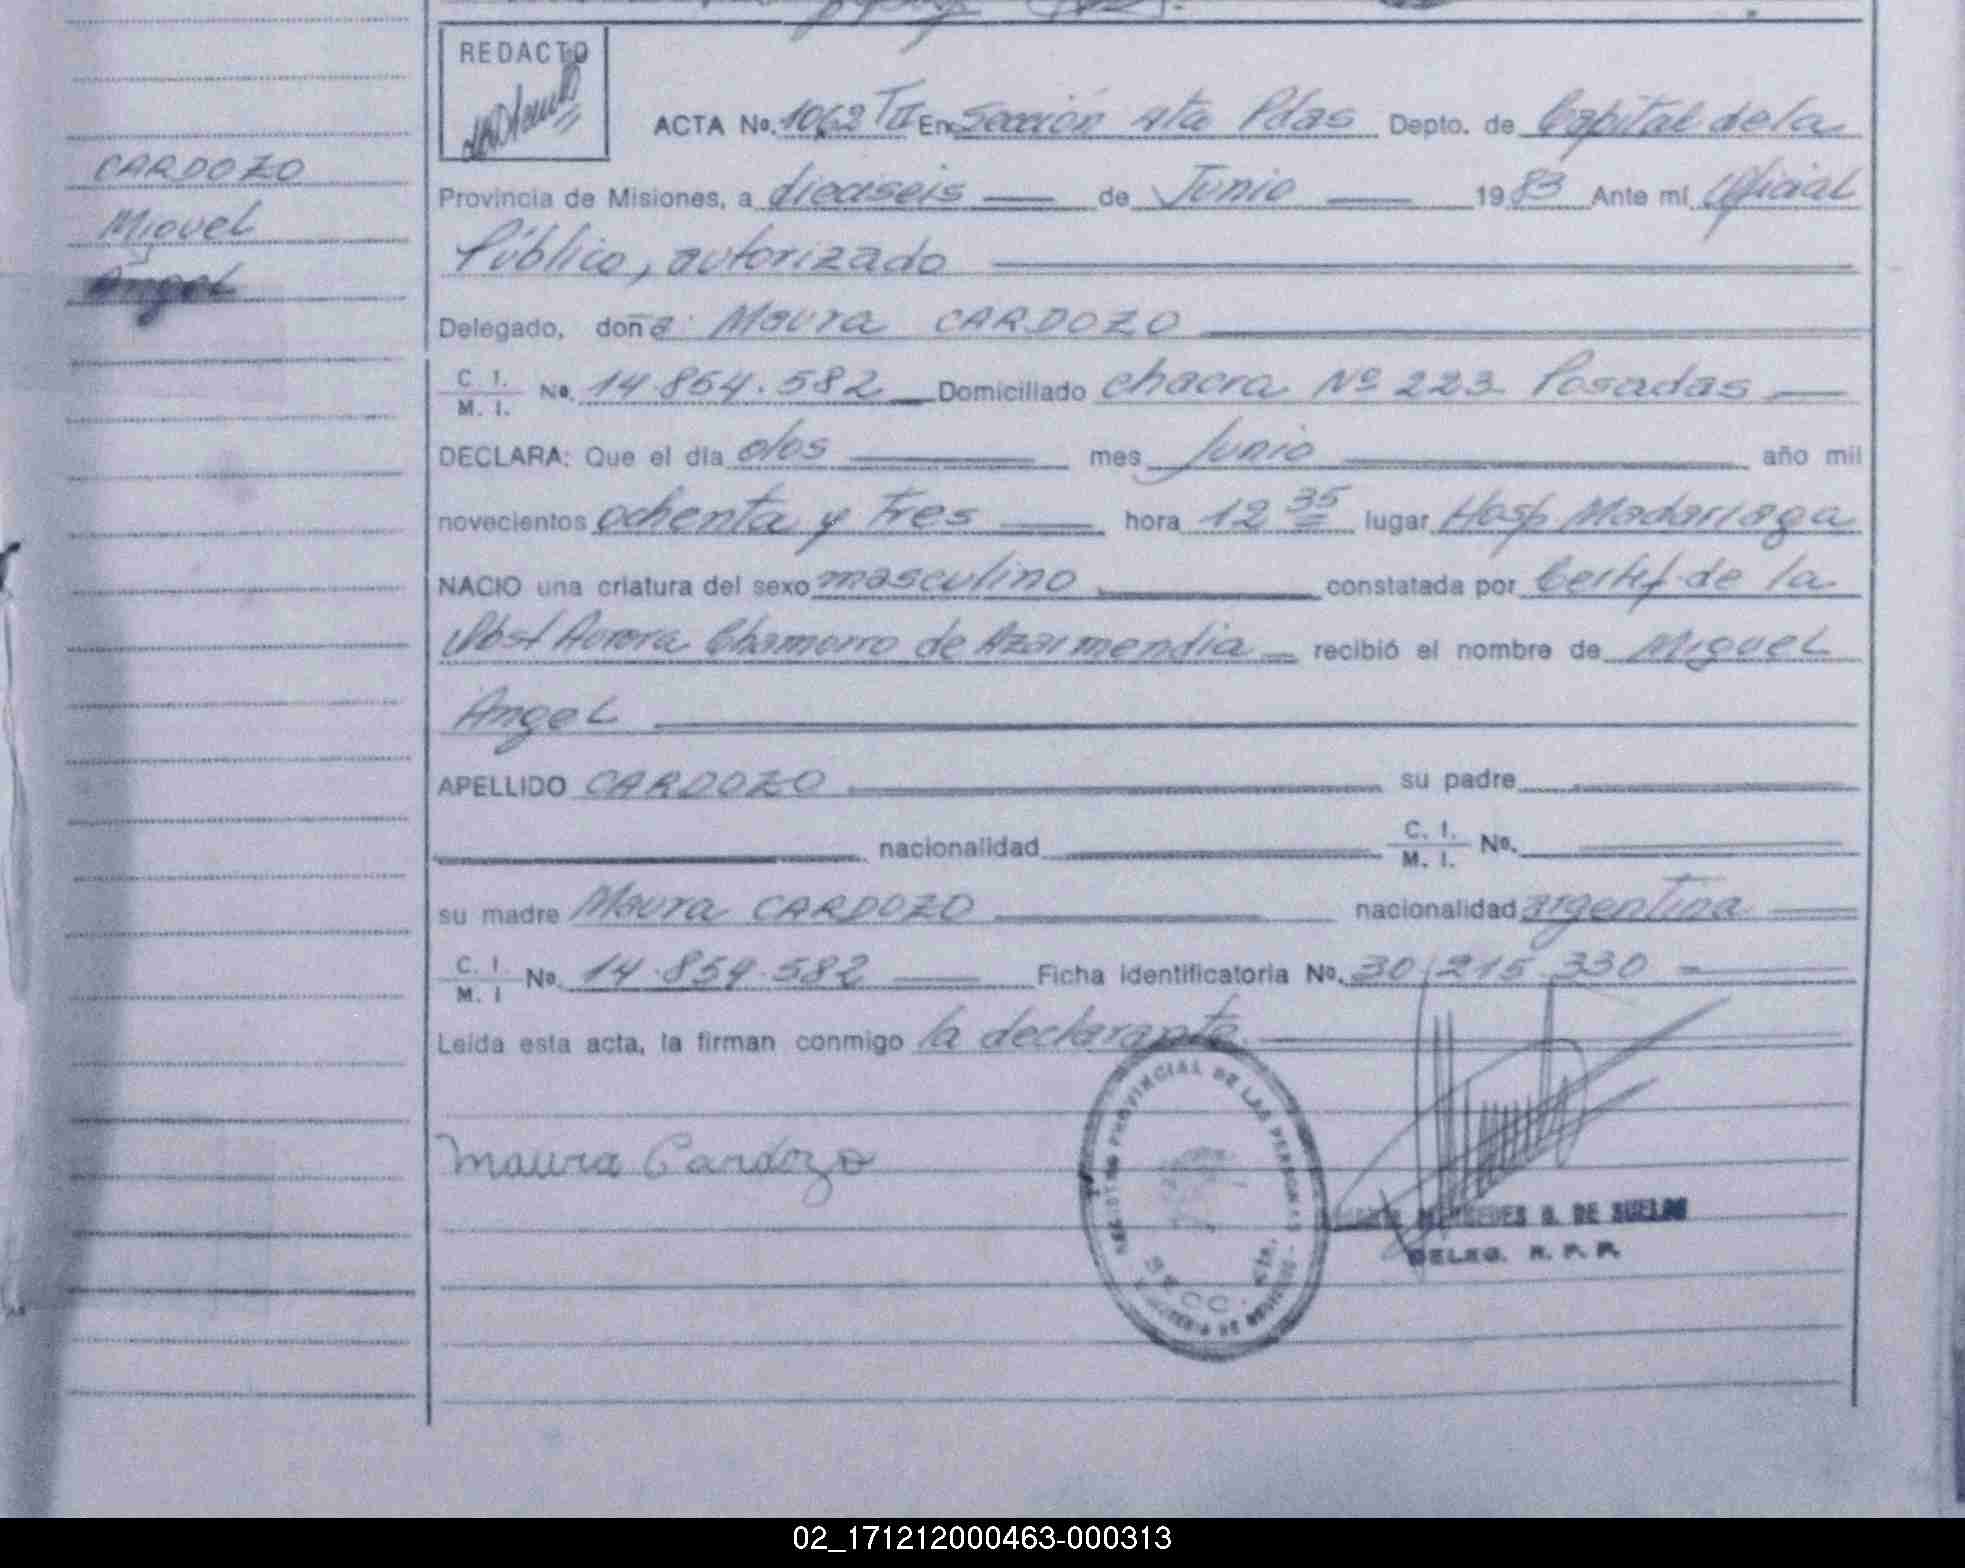 REDACTO
ACTA No. 1062 TII En Sección 4ta Pdas Depto. de Capital de la
CARDOZO
Miguel
Angel
Provincia de Misiones, a dieciseis de Junio 1983 Ante mí Oficial
Público, autorizado
Delegado, doña Maura CARDOZO
C. I.
M. I. No. 14.854.582 Domiciliado chacra Nº 223 Posadas
DECLARA: Que el día dos mes Junio año mil
novecientos ochenta y tres hora 12 35 lugar Hosp Madariaga
NACIO una criatura del sexo masculino constatada por Certif. de la
Obst Aurora Chamorro de Azarmendia recibió el nombre de Miguel
Angel
APELLIDO CARDOZO su padre
nacionalidad C. I.
M. I. No.
su madre Maura CARDOZO nacionalidad argentina
C. I.
M. I No. 14.854.582 Ficha identificatoria No. 30.215.330
Leída esta acta, la firman conmigo la declarante.
Maura Cardozo
REGISTRO PROVINCIAL DE LAS PERSONAS
SECC. 4TA.
DE SUELDO
DELEG. R. P. P.
02_171212000463-000313